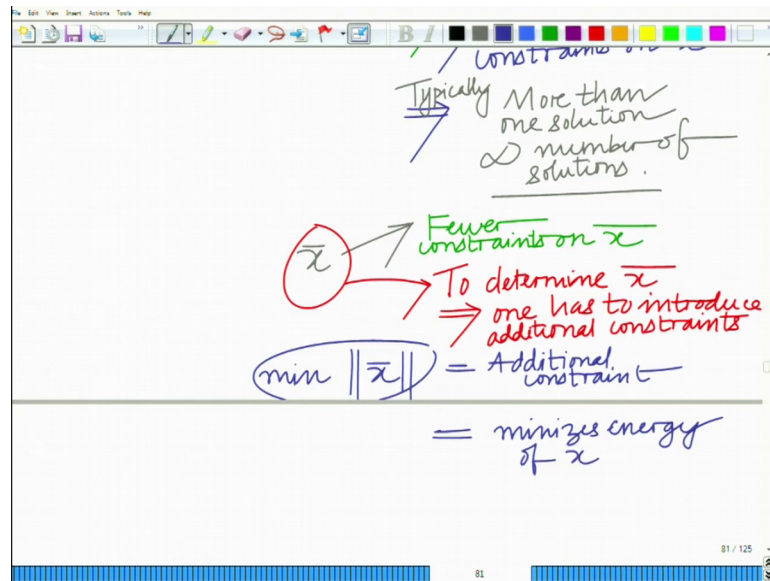 File Edit View Insert Actions Tools Help
B I
constraints on x̄
Typically More than
one solution
∞ number of
solutions.
x̄
Fewer
constraints on x̄
To determine x̄
⇒ one has to introduce
additional constraints
min ||x̄|| = Additional
constraint
= minizes energy
of x
81 / 125
81